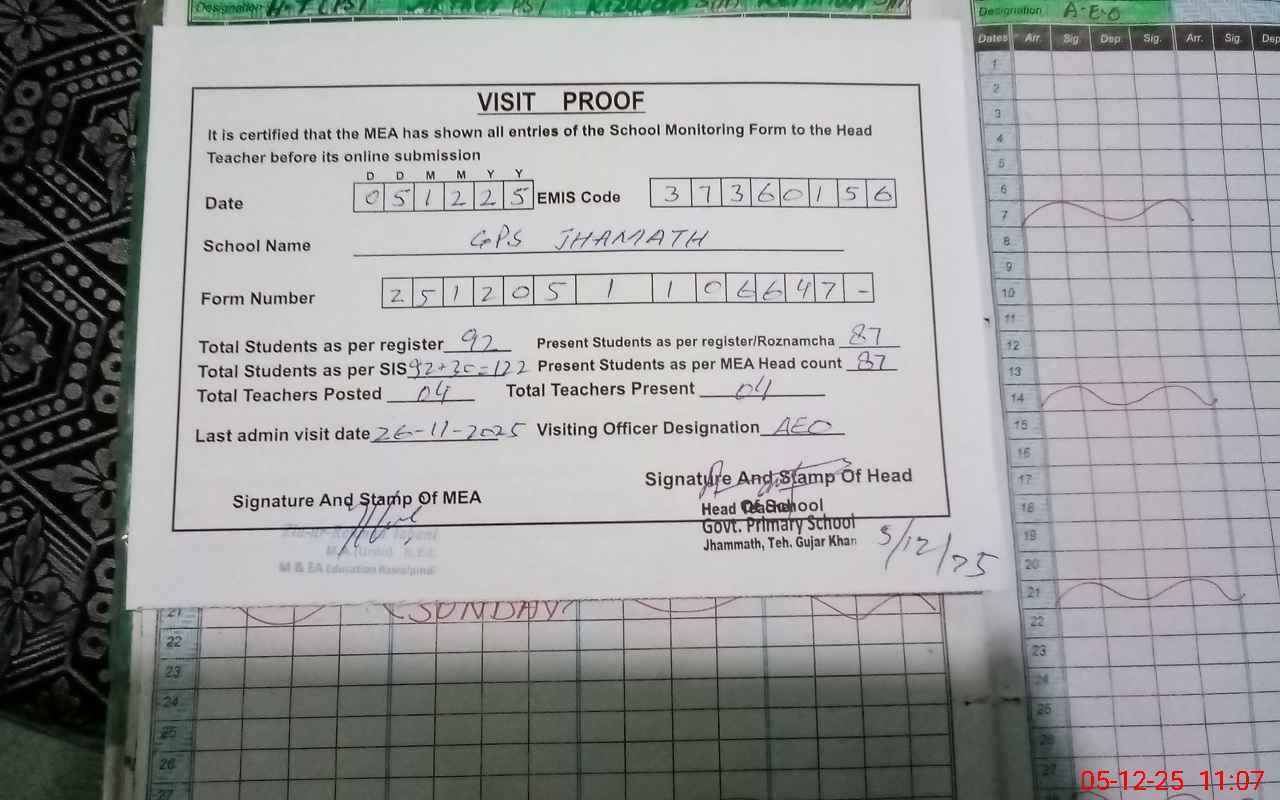 Designation
Designation A-E-O
Dates Arr. Sig. Dep. Sig. Arr. Sig. Dep
VISIT PROOF
It is certified that the MEA has shown all entries of the School Monitoring Form to the Head
Teacher before its online submission
D D M M Y Y
Date 0 5 1 2 2 5 EMIS Code 3 7 3 6 0 1 5 6
School Name GPS JHAMATH
Form Number 2 5 1 2 0 5 1 1 0 6 6 4 7 -
Total Students as per register 92 Present Students as per register/Roznamcha 87
Total Students as per SIS 92+30=122 Present Students as per MEA Head count 87
Total Teachers Posted 04 Total Teachers Present 04
Last admin visit date 26-11-2025 Visiting Officer Designation AEO
Signature And Stamp Of MEA
Signature And Stamp Of Head
Of School
Head Teacher
Govt. Primary School
Jhammath, Teh. Gujar Khan
5/12/25
M & EA Education Rawalpindi
SUNDAY
21
22
23
24
25
26
27
1
2
3
4
5
6
7
8
9
10
11
12
13
14
15
16
17
18
19
20
21
22
23
24
25
26
27
05-12-25 11:07